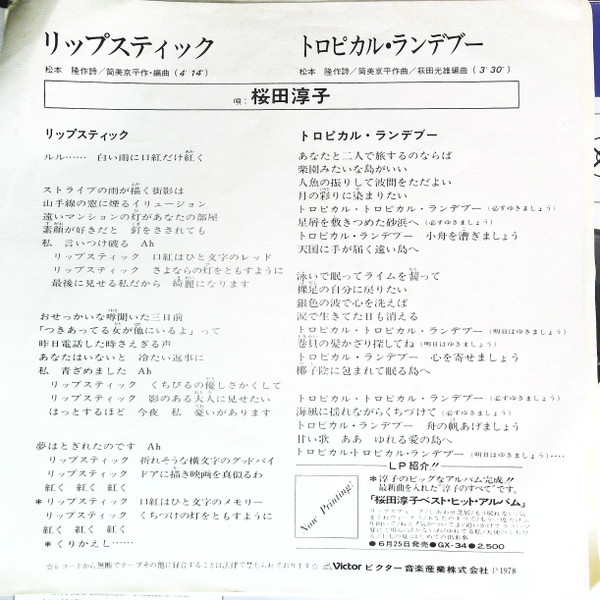 リップスティック
松本 隆作詩／筒美京平作・編曲（4′14″）
トロピカル・ランデブー
松本 隆作詩／筒美京平作曲／萩田光雄編曲（3′30″）
唄：桜田淳子
リップスティック
ルル…… 白い雨に口紅だけ紅く
ストライプの雨が描く街影は
山手線の窓に煙るイリュージョン
遠いマンションの灯があなたの部屋
素顔が好きだと 釘をさされても
私 言いつけ破る Ah
リップスティック 口紅はひと文字のレッド
リップスティック さよならの灯をともすように
最後に見せる私だから 綺麗になります
おせっかいな噂聞いた三日前
「つきあってる女が他にいるよ」って
昨日電話した時さえぎる声
あなたはいないと 冷たい返事に
私 青ざめました Ah
リップスティック くちびるの優しさかくして
リップスティック 影のある大人に見せたい
はっとするほど 今夜 私 憂いがあります
夢はとぎれたのです Ah
リップスティック 折れそうな横文字のグッドバイ
リップスティック ドアに描き映画を真似るわ
紅く 紅く 紅く
＊リップスティック 口紅はひと文字のメモリー
リップスティック くちづけの灯をともすように
紅く 紅く 紅く
＊くりかえし……
トロピカル・ランデブー
あなたと二人で旅するのならば
楽園みたいな島がいい
人魚の振りして波間をただよい
月の彩りに染まりたい
トロピカル・トロピカル・ランデブー（必ずゆきましょう）
星屑を敷きつめた砂浜へ（必ずゆきましょう）
トロピカル・ランデブー 小舟を漕ぎましょう
天国に手が届く遠い島へ
泳いで眠ってライムを齧って
裸足の自分に戻りたい
銀色の波で心を洗えば
涙で生きてた日も消える
トロピカル・トロピカル・ランデブー（明日はゆきましょう）
巻貝の髪かざり探してね（明日はゆきましょう）
トロピカル・ランデブー 心を寄せましょう
椰子陰に包まれて眠る島へ
トロピカル・トロピカル・ランデブー（必ずゆきましょう）
海風に揺れながらくちづけて（必ずゆきましょう）
トロピカル・ランデブー 舟の帆あげましょう
甘い歌 ああ ゆれる愛の島へ
トロピカル・トロピカル・ランデブー（明日はゆきましょう）……
LP紹介!!
Now Printing!
＊淳子のビッグなアルバム完成!!
最新曲を入れた"淳子のすべて"です。
「桜田淳子ベスト・ヒット・アルバム」
●6月25日発売●GX-34●2,500
☆レコードから無断でテープその他に録音することは法律で禁じられております☆
Victor ビクター音楽産業株式会社 Ⓟ1978